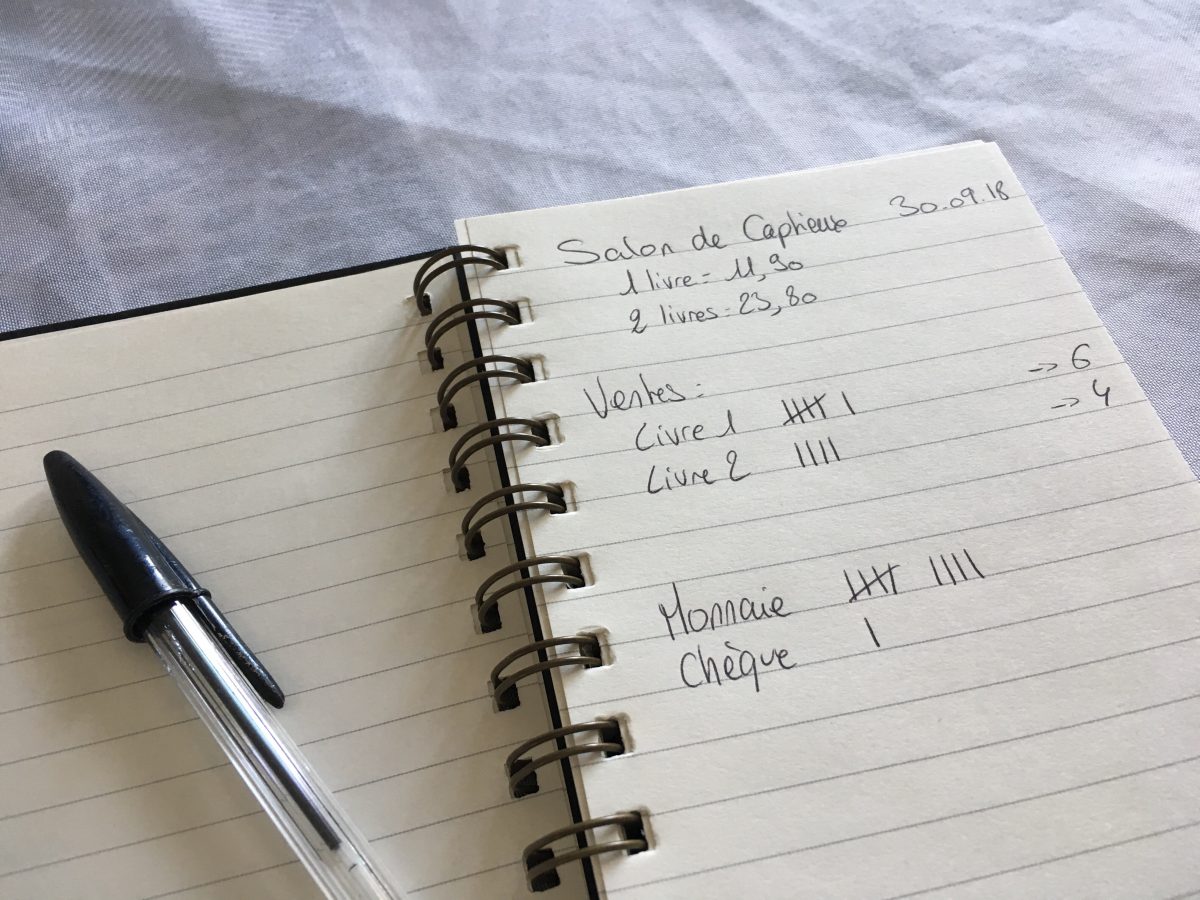 Salon de Captieux 30.09.18
1 livre = 11,90
2 livres = 23,80
Ventes :
Livre 1 𝍸 | -> 6
Livre 2 |||| -> 4
Monnaie 𝍸 ||||
Chèque |